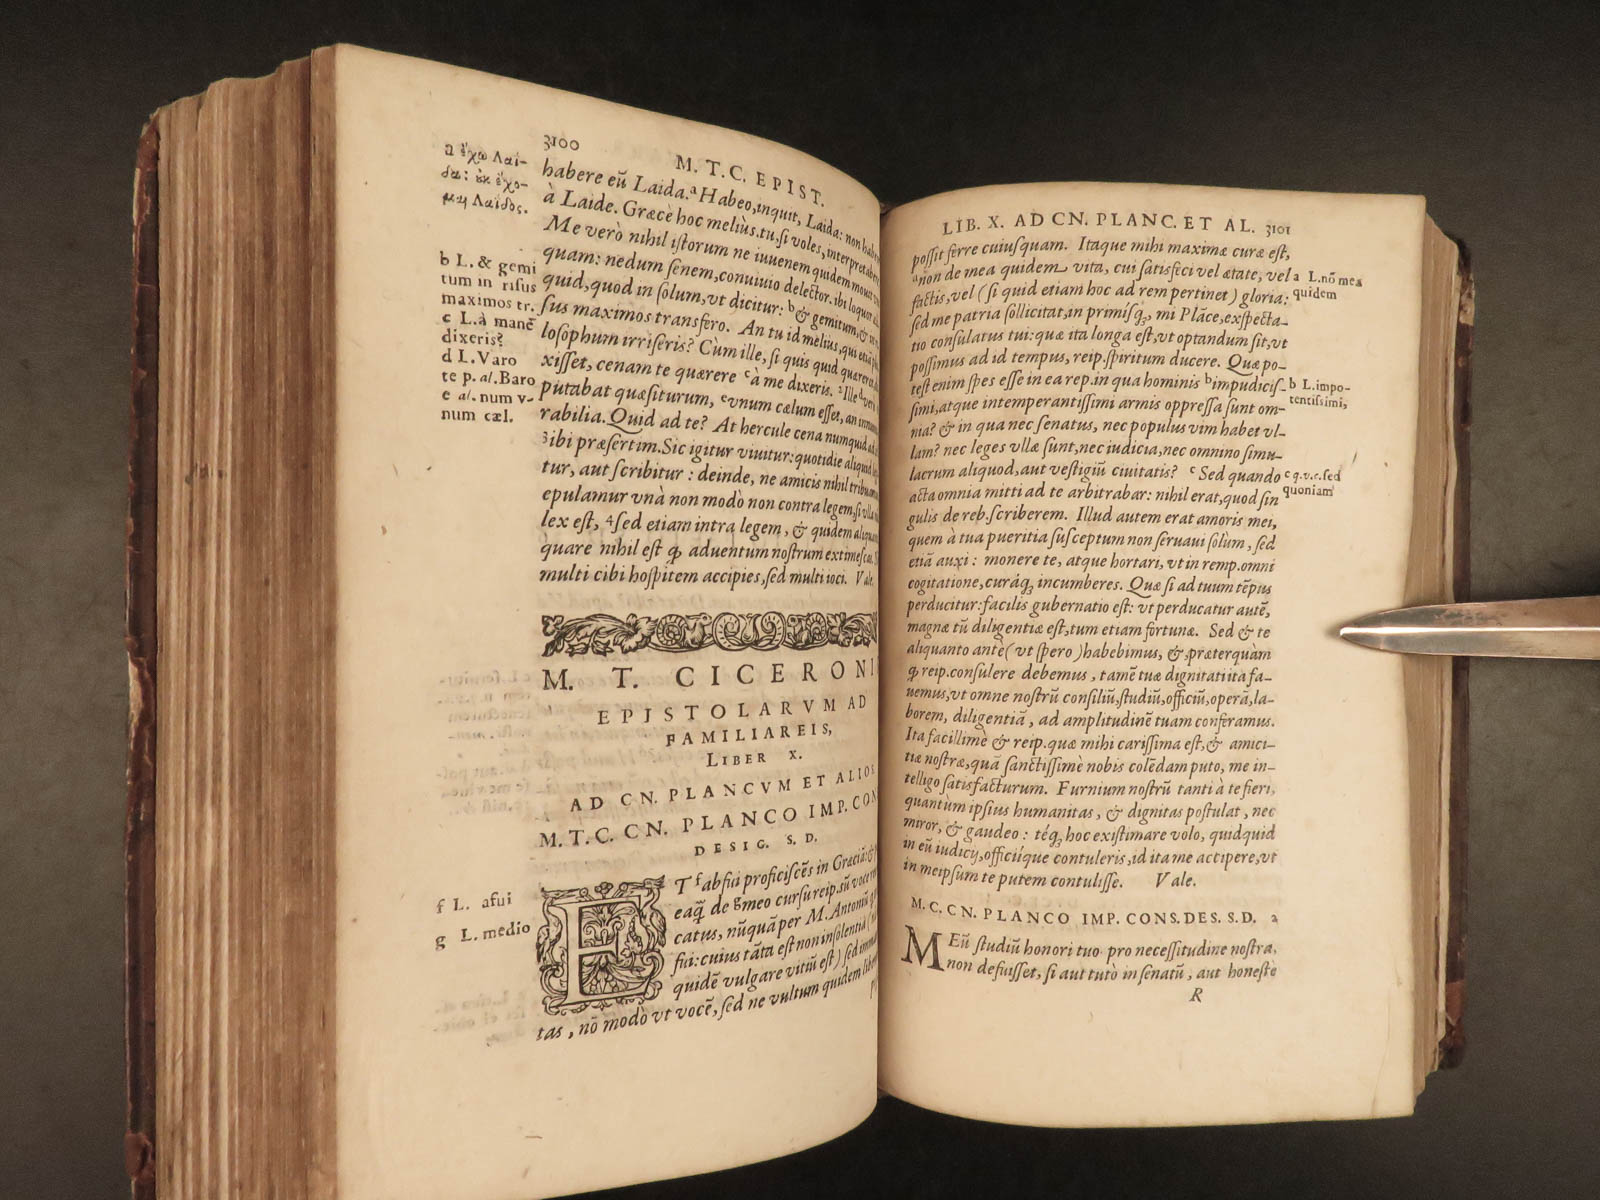 3100
M. T. C. EPIST.
habere eũ Laida. ᵃ Habeo, inquit, Laida: non
à Laide. Græcè hoc meliùs. tu, si voles, interpretabere
Me verò nihil istorum ne iuuenem quidem mouit
quam: nedum senem, conuiuio delector. ibi loquor
quid, quod in solum, vt dicitur: ᵇ & gemitum,
sus maximos transfero. An tu id melius, qui etiã
losophum irriseris? Cùm ille, si quis quid quæreret
xisset, cenam te quærere ᶜ à me dixeris. ² Ille ᵈ
putabat quæsiturum, ᵉ vnum cælum esset, an innume
rabilia. Quid ad te? At hercule cena numquid ad
³ ibi præsertim. Sic igitur viuitur: quotidie aliquid
tur, aut scribitur: deinde, ne amicis nihil tribuamus
epulamur vnà non modò non contra legem, si vlla
lex est, ⁴ sed etiam intra legem, & quidem aliquanto
quare nihil est ꝙ aduentum nostrum extimescas.
multi cibi hospitem accipies, sed multi ioci. Vale.
a ἔχω Λαΐ-
δα: ȣκ ἔχο-
μαι Λαΐδος.
b L. & gemi
tum in risus
maximos tr.
c L. à manẽ
dixeris?
d L. Varo
te p. al. Baro
e al. num v-
num cæl.
M. T. CICERONI
EPISTOLARVM AD
FAMILIAREIS,
LIBER X.
AD CN. PLANCVM ET ALIOS
M. T. C. CN. PLANCO IMP. CON
DESIG. S. D.
ET ᶠ abfui proficiscẽs in Græciã:
eaq̃ de ᵍ meo cursu reip. sũ voce
catus, nũquã per M. Antoniũ
fui: cuius tãta est non insolentia
quidẽ vulgare vitiũ est) sed imma
tas, nõ modò vt vocẽ, sed ne vultum quidem liber
f L. afui
g L. medio
LIB. X. AD CN. PLANC. ET AL. 3101
possit ferre cuiusquam. Itaque mihi maximæ curæ est,
ᵃ nõn de mea quidem vita, cui satisfeci vel ætate, vel
factis, vel (si quid etiam hoc ad rem pertinet) gloria:
sed me patria sollicitat, in primisq́;, mi Plãce, exspecta-
tio consulatus tui: quæ ita longa est, vt optandum sit, vt
possimus ad id tempus, reip. spiritum ducere. Quæ po-
test enim spes esse in ea rep. in qua hominis ᵇ impudicis-
simi, atque intemperantissimi armis oppressa sunt om-
nia? & in qua nec senatus, nec populus vim habet vl-
lam? nec leges vllæ sunt, nec iudicia, nec omnino simu-
lacrum aliquod, aut vestigiũ ciuitatis? ᶜ Sed quando
acta omnia mitti ad te arbitrabar: nihil erat, quod sin
gulis de reb. scriberem. Illud autem erat amoris mei,
quem à tua pueritia susceptum non seruaui solùm, sed
etiã auxi: monere te, atque hortari, vt in remp. omni
cogitatione, curáq́; incumberes. Quæ si ad tuum tẽpus
perducitur: facilis gubernatio est: vt perducatur autẽ,
magnæ tũ diligentiæ est, tum etiam fortunæ. Sed & te
aliquanto ante (vt spero) habebimus, &, præterquàm
ꝙ reip. consulere debemus, tamẽ tuæ dignitati ita fa-
uemus, vt omne nostrũ consiliũ, studiũ, officiũ, operã, la-
borem, diligentiã, ad amplitudinẽ tuam conferamus.
Ita facillimè & reip. quæ mihi carissima est, & amici-
tiæ nostræ, quã sanctissimè nobis colẽdam puto, me in-
telligo satisfacturum. Furnium nostrũ tanti à te fieri,
quantum ipsius humanitas, & dignitas postulat, nec
miror, & gaudeo: téq́; hoc existimare volo, quidquid
in eũ iudicij, officiíque contuleris, id ita me accipere, vt
in meipsum te putem contulisse. Vale.
a L. nõ mea
quidem
b L. impo-
tentissimi,
c q. v. c. sed
quoniam
M. C. CN. PLANCO IMP. CONS. DES. S. D. 2
MEũ studiũ honori tuo pro necessitudine nostra,
non defuisset, si aut tutò in senatũ, aut honestè
R